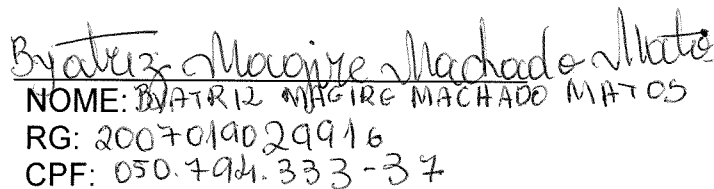 Byatriz Magire Machado Mato
NOME: BYATRIZ MAGIRE MACHADO MATOS
RG: 2007019029916
CPF: 050.794.333-37